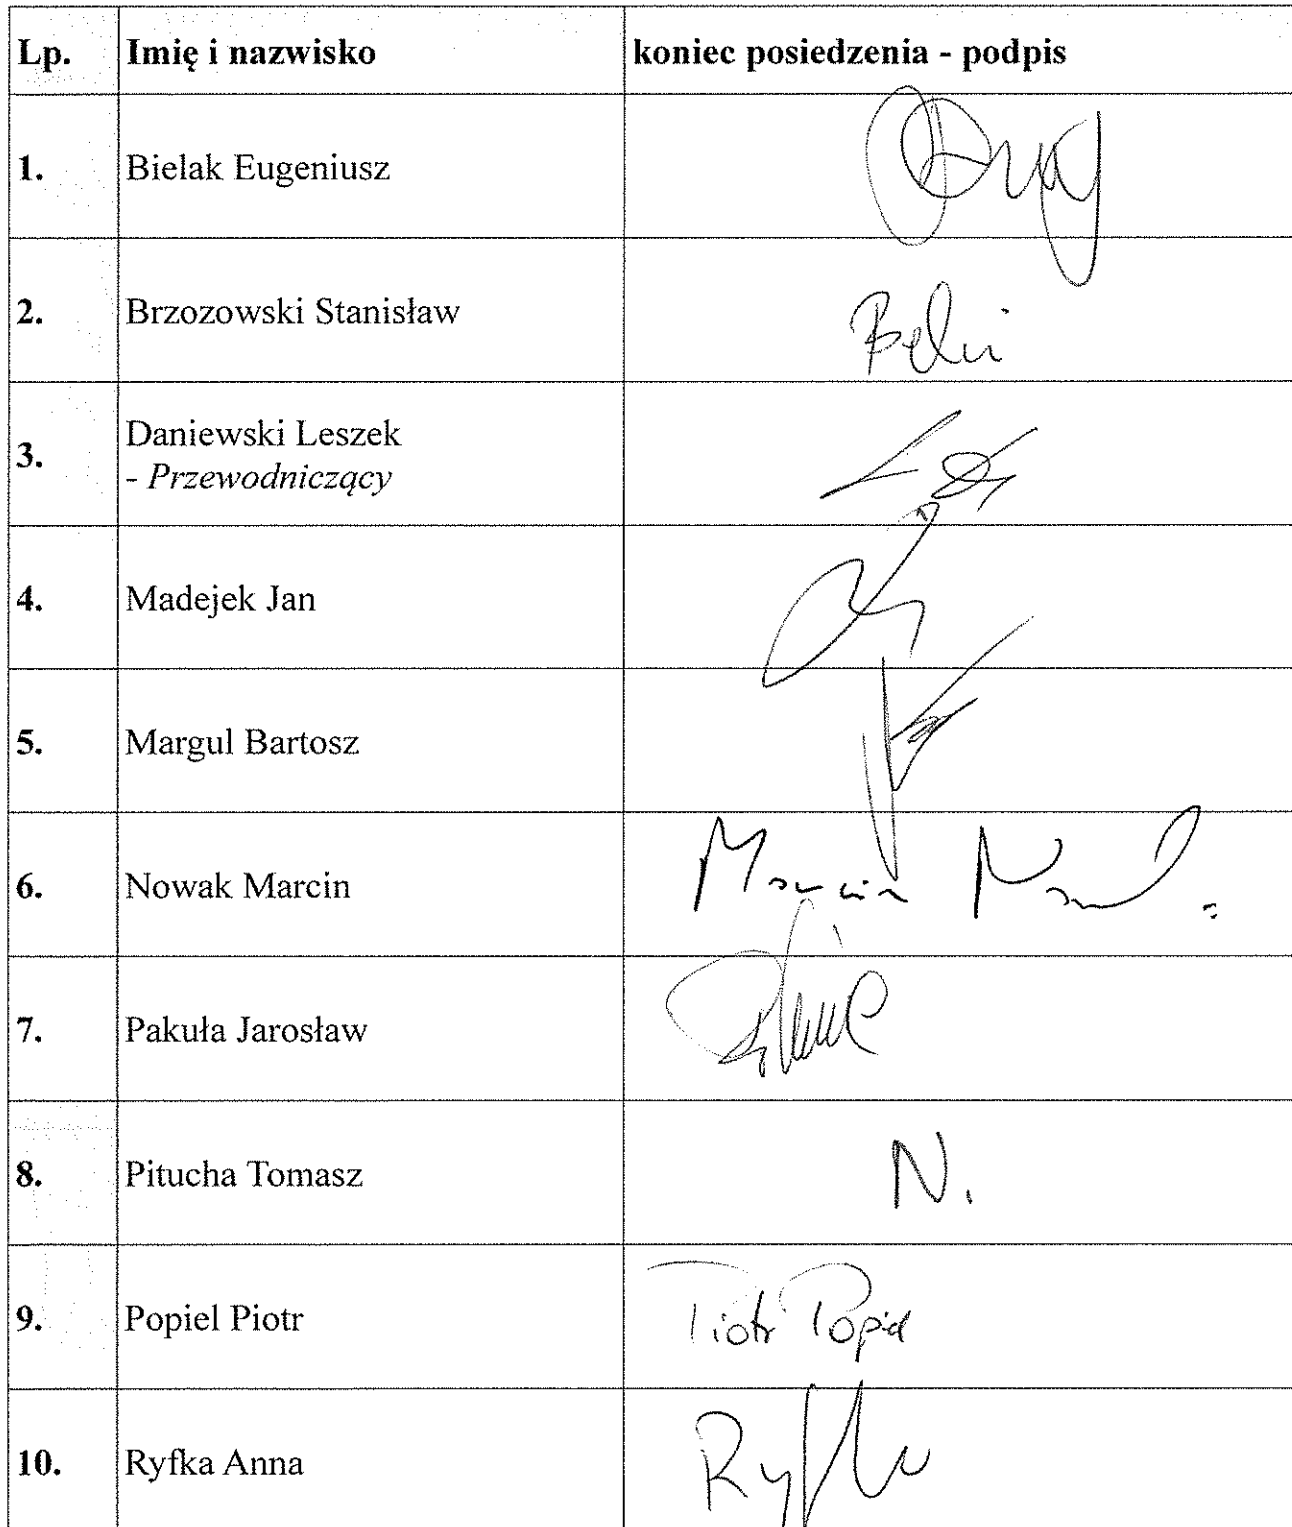 Lp. Imię i nazwisko koniec posiedzenia - podpis
1. Bielak Eugeniusz
2. Brzozowski Stanisław
3. Daniewski Leszek
- Przewodniczący
4. Madejek Jan
5. Margul Bartosz
6. Nowak Marcin Marcin Nowak
7. Pakuła Jarosław
8. Pitucha Tomasz N.
9. Popiel Piotr Piotr Popiel
10. Ryfka Anna Ryfka